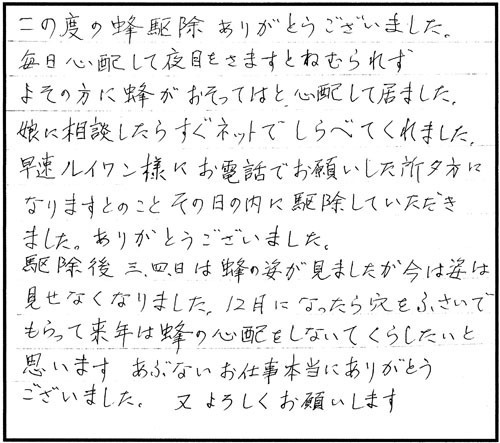 この度の蜂駆除ありがとうございました。
毎日心配して夜目をさますとねむられず
よその方に蜂がおそってはと心配して居ました。
娘に相談したらすぐネットでしらべてくれました。
早速ルイワン様にお電話でお願いした所夕方に
なりますとのことその日の内に駆除していただき
ました。ありがとうございました。
駆除後三、四日は蜂の姿が見ましたが今は姿は
見せなくなりました。12月になったら穴をふさいで
もらって来年は蜂の心配をしないてくらしたいと
思います あぶないお仕事本当にありがとう
ございました。 又よろしくお願いします